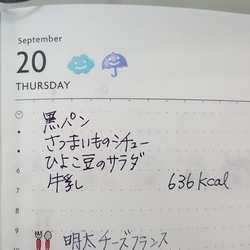 September
20
THURSDAY
黒パン
さつまいものシチュー
ひよこ豆のサラダ
牛乳 636kcal
明太チーズフランス
6
7
8
9